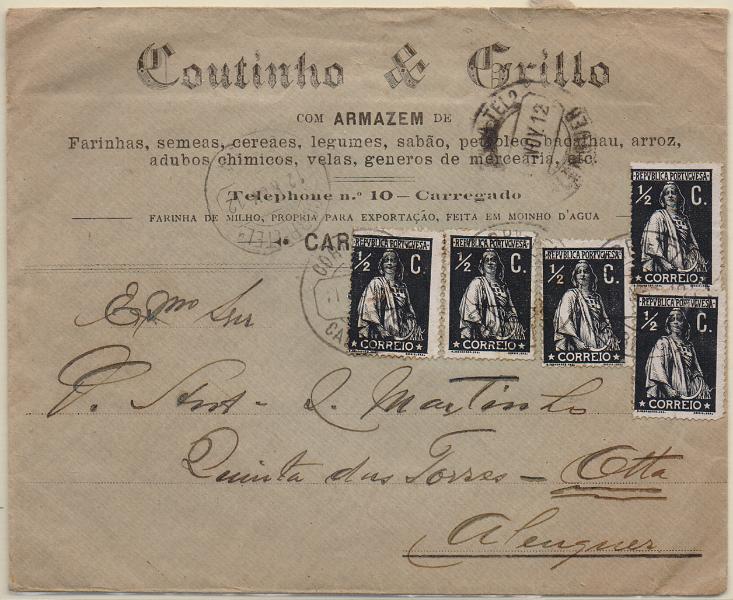 Coutinho & Grillo
COM ARMAZEM DE
Farinhas, semeas, cereaes, legumes, sabão, petroleo, bacalhau, arroz,
adubos chimicos, velas, generos de mercearia, etc.
Telephone n.º 10 — Carregado
FARINHA DE MILHO, PROPRIA PARA EXPORTAÇÃO, FEITA EM MOINHO D'AGUA
NOV 12
CAR
REPVBLICA PORTVGVESA
½ C.
CORREIO
REPVBLICA PORTVGVESA
½ C.
CORREIO
REPVBLICA PORTVGVESA
½ C.
CORREIO
REPVBLICA PORTVGVESA
½ C.
CORREIO
REPVBLICA PORTVGVESA
½ C.
CORREIO
Exmo Snr
Martinho
Quinta das Torres — Otta
Alenquer